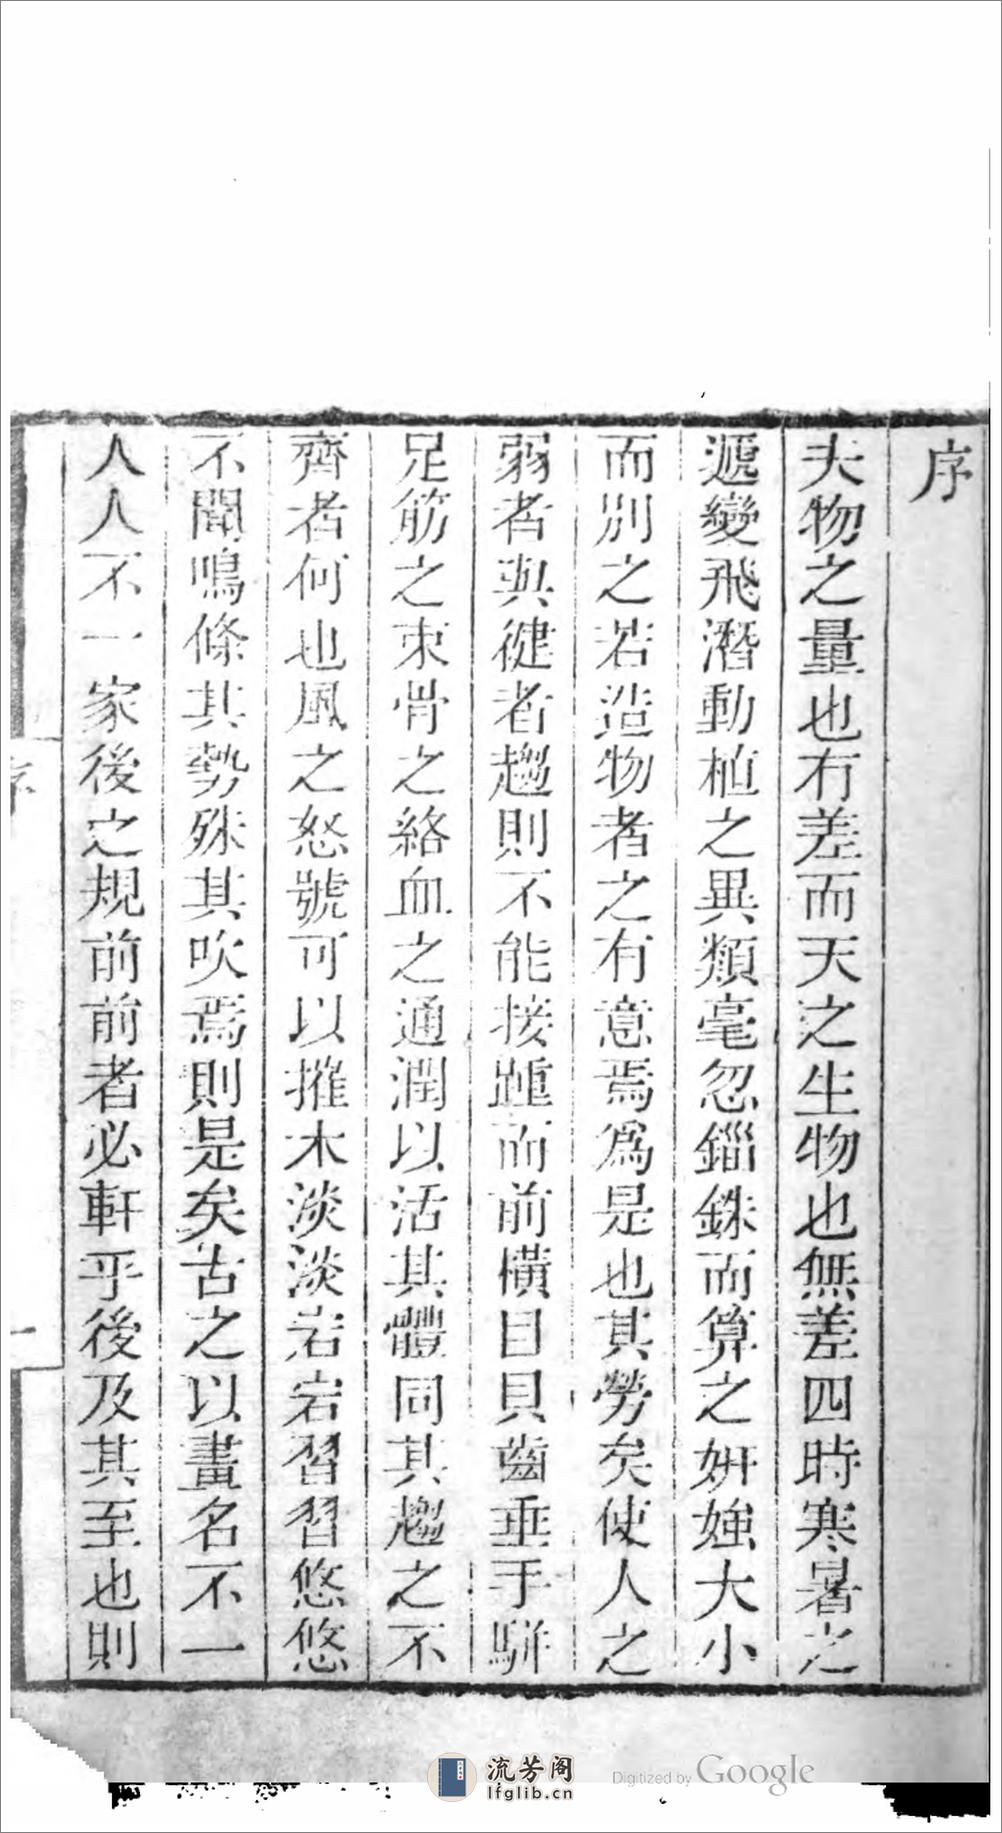 序
夫物之量也有差而天之生物也無差四時寒暑之
遞變飛潛動植之異類毫忽錙銖而算之妍媸大小
而别之若造物者之有意焉爲是也其勞矣使人之
弱者與健者趨則不能接踵而前橫目貝齒垂手駢
足筋之束骨之絡血之通潤以活其體同其趨之不
齊者何也風之怒號可以摧木淡淡宕宕習習悠悠
不聞鳴條其勢殊其吹焉則是矣古之以畫名不一
人人不一家後之規前前者必軒乎後及其至也則
序
一
流芳阁
lfglib.cn
Digitized by Google